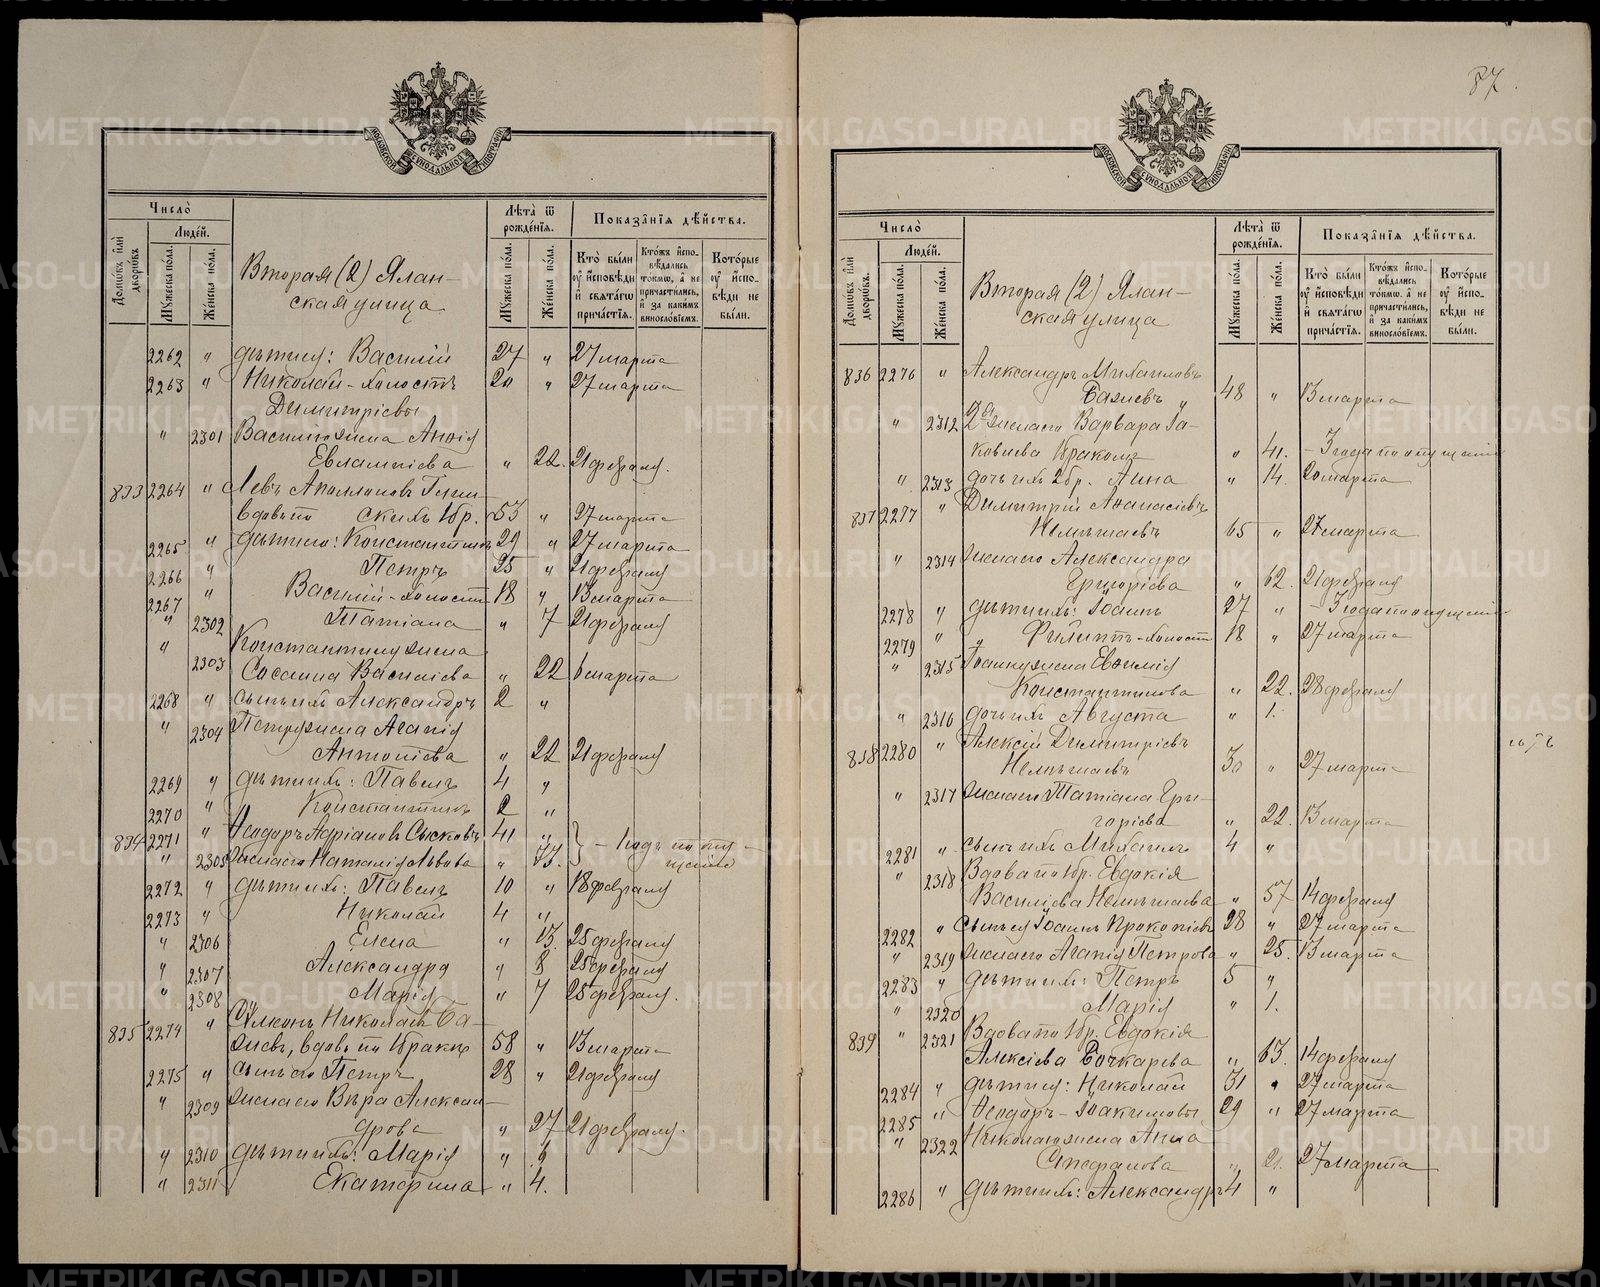 87.
МОСКОВСКОЙ СѴНОДАЛЬНОЙ ТИПОГРАФІИ
Число̀
Людей.
Домѡвъ и҆лѝ дворѡвъ.
Мꙋжеска по́ла.
Же́нска по́ла.
Вторая (2) Ялан-
ская улица
Лѣта̀ ѿ рожде́нїя.
Мꙋжеска по́ла.
Же́нска по́ла.
Показа̑нїѧ дѣ́йства.
Кто̀ бы́ли оу҆ и҆спо́вѣди и҆ свѧта́гѡ прича́стїѧ.
Кто́жъ и҆спо-вѣ́дались то́кмѡ, а҆ не причасти́лись, и҆ за каки́мъ винослѡ́вїемъ.
Кото́рые оу҆ и҆спо-вѣди не бы́ли.
2262 " дѣти ему: Василій 27 " 27 марта
2263 " Николай - холостъ 20 " 27 марта
Димитріевы
" 2301 Василію жена Анна
Евлампіева " 22. 21 февраля.
833 2264 " Левъ Аполлоновъ
вдовъ по бр. 53 " 27 марта
2265 " дѣти его: Константинъ 29 " 27 марта
2266 " Петръ 25 " 21 февраля
2267 " Василій - холостъ 18 " 13 марта
" 2302 Татіана " 7 21 февраля
" Константину жена
2303 Васильева " 22 6 марта
2268 " сынъ ихъ Александръ 2 "
" 2304 Петру жена Агапія
Антоніева " 22 21 февраля
2269 " дѣти ихъ: Павелъ 4 "
2270 " Константинъ 2 "
834 2271 " Ѳеодоръ Адріановъ Сысковъ 41 "
" 2305 Жена его Наталія Львова " 33. } - 1 годъ по опу-
щенію
2272 " дѣти ихъ: Павелъ 10 " 18 февраля
2273 " Николай 4 "
" 2306 Елена " 13. 25 февраля
" 2307 Александра " 8 25 февраля
" 2308 Марія " 7 25 февраля.
835 2274 " Сѵмеонъ Николаевъ Ба-
жиевъ, вдовъ по 1 бракѣ 58 " 13 марта
2275 " сынъ его Петръ 28 " 21 февраля
" 2309 Жена его Вѣра Алексан-
дрова " 27 21 февраля.
" 2310 дѣти ихъ: Марія " 6
" 2311 Екатерина " 4.
МОСКОВСКОЙ СѴНОДАЛЬНОЙ ТИПОГРАФІИ
Число̀
Людей.
Домѡвъ и҆лѝ дворѡвъ.
Мꙋжеска по́ла.
Же́нска по́ла.
Вторая (2) Ялан-
ская улица
Лѣта̀ ѿ рожде́нїя.
Мꙋжеска по́ла.
Же́нска по́ла.
Показа̑нїѧ дѣ́йства.
Кто̀ бы́ли оу҆ и҆спо́вѣди и҆ свѧта́гѡ прича́стїѧ.
Кто́жъ и҆спо-вѣ́дались то́кмѡ, а҆ не причасти́лись, и҆ за каки́мъ винослѡ́вїемъ.
Кото́рые оу҆ и҆спо-вѣди не бы́ли.
836 2276 " Александръ Михаиловъ
48 " 13 марта
" 2312 2ая жена его Варвара Іа-
ковлева 1 бракомъ " 41. - 3 года по опущенію
" 2313 дочь ихъ 2 бр. Анна " 14. 20 марта
837 2277 " Димитрій Аѳанасіевъ
Немѣшаевъ 65 " 27 марта
" 2314 Жена его Александра
Григоріева " 62. 21 февраля
2278 " дѣти ихъ: Іоаннъ 27 " - 3 года по опущенію
2279 " Филиппъ - холостъ 18 " 27 марта
" 2315 Іоанну жена Евѳимія
Константинова " 22. 28 февраля
" 2316 дочь ихъ Августа " 1.
838 2280 " Алексій Димитріевъ
Немѣшаевъ 30 " 27 марта
" 2317 Жена его Татіана Гри-
горіева " 22. 13 марта
2281 " сынъ ихъ Михаилъ 4 "
" 2318 Вдова по 1 бр. Евдокія
Василіева Немѣшаева " 57 14 февраля
2282 " Сынъ ея Іоаннъ Прокопіевъ 28 " 27 марта
" 2319 Жена его Агапія Петрова " 25. 13 марта
2283 " дѣти ихъ: Петръ 5 "
" 2320 Марія " 1.
839 " 2321 Вдова по 1 бр. Евдокія
Алексіева Бочкарева " 63. 14 февраля
2284 " дѣти ея: Николай 31 " 27 марта
2285 " Ѳеодоръ - Іоакимовы 29 " 27 марта
" 2322 Николаю жена Анна
Стефанова " 21. 27 марта
2286 " дѣти ихъ: Александръ 4 "
METRIKI.GASO-URAL.RU